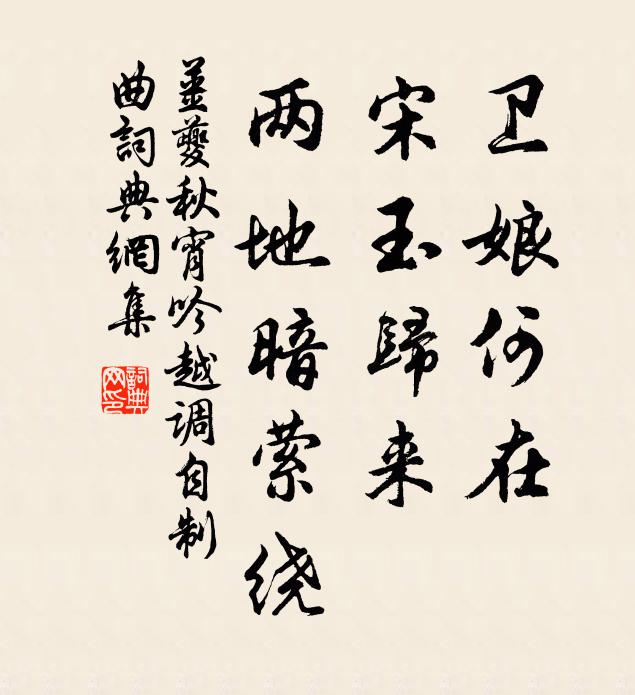 卫娘何在
宋玉歸来
两地暗萦绕
薑夔秋宵吟越调自制
曲詞典網集
詞典
网印